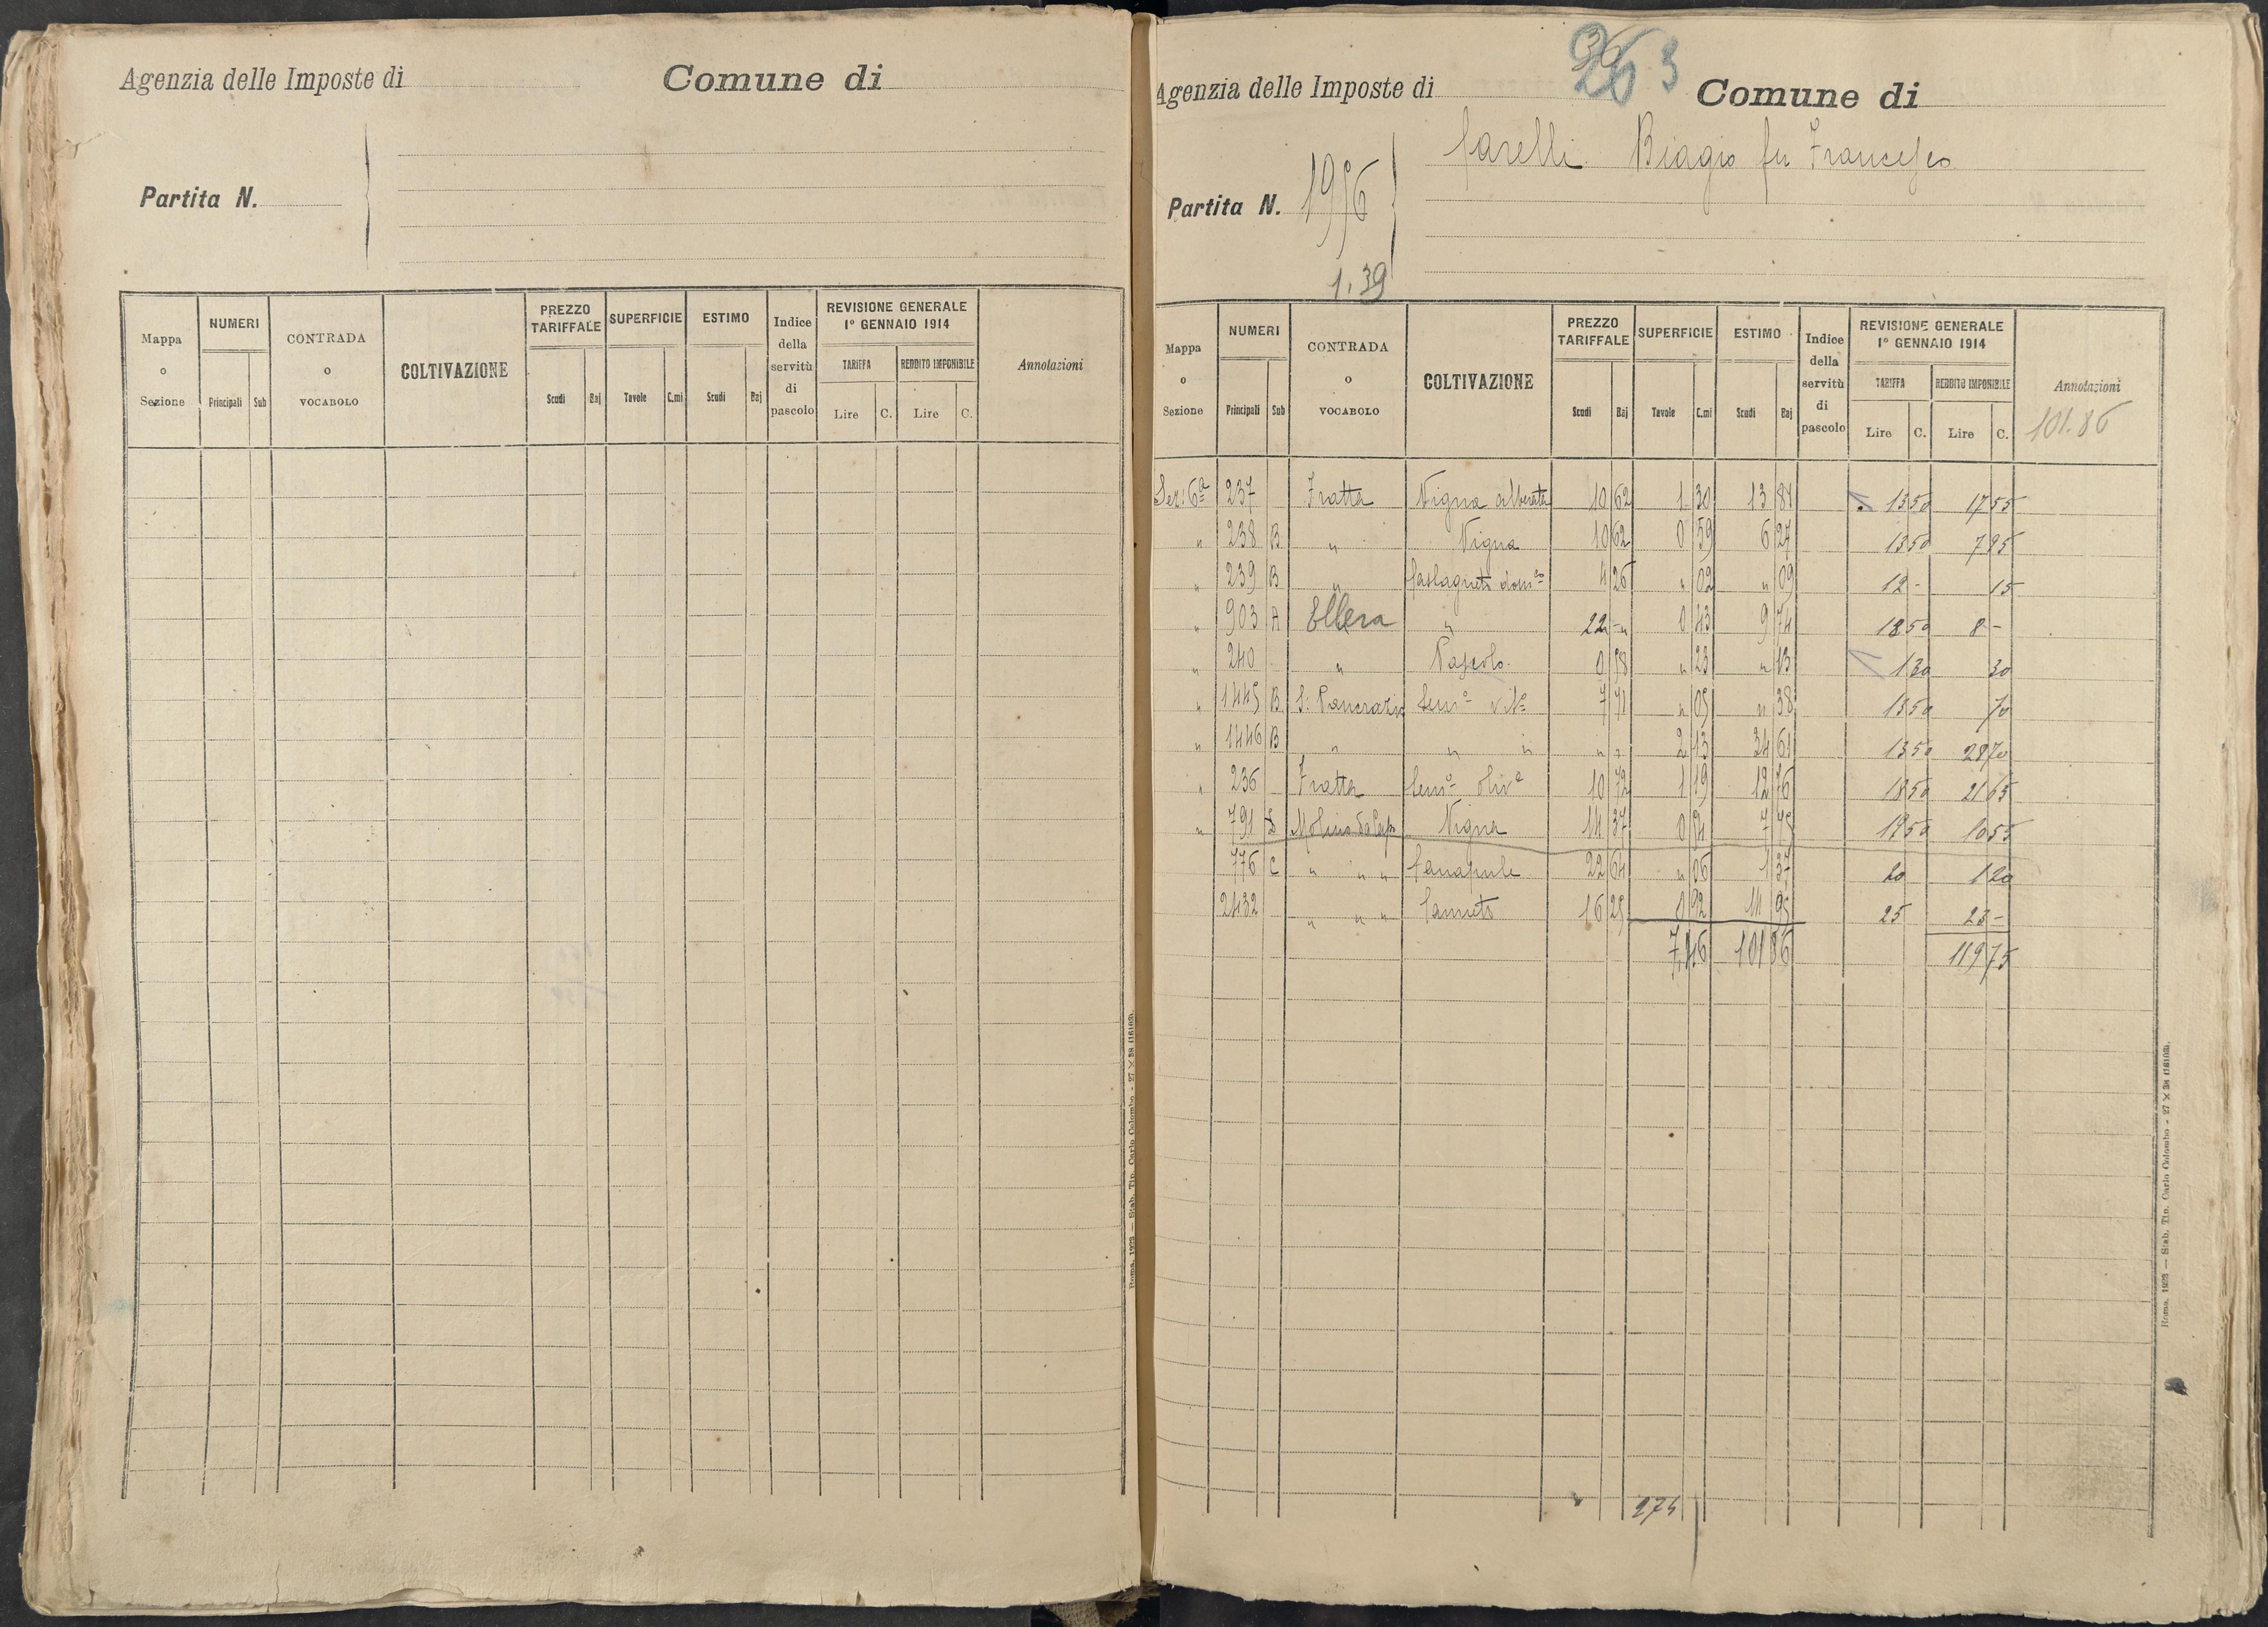 Agenzia delle Imposte di Comune di
Partita N.
Mappa o Sezione NUMERI Principali Sub CONTRADA o VOCABOLO COLTIVAZIONE PREZZO TARIFFALE Scudi Baj SUPERFICIE Tavole C.mi ESTIMO Scudi Baj Indice della servitù di pascolo REVISIONE GENERALE 1° GENNAIO 1914 TARIFFA Lire C. REDDITO IMPONIBILE Lire C. Annotazioni
Roma, 1923 — Stab. Tip. Carlo Colombo - 27 × 38 (16163).
263
Agenzia delle Imposte di Comune di
Biagio fu Francesco
Partita N.
1.39
Mappa o Sezione NUMERI Principali Sub CONTRADA o VOCABOLO COLTIVAZIONE PREZZO TARIFFALE Scudi Baj SUPERFICIE Tavole C.mi ESTIMO Scudi Baj Indice della servitù di pascolo REVISIONE GENERALE 1° GENNAIO 1914 TARIFFA Lire C. REDDITO IMPONIBILE Lire C. Annotazioni
101.86
Sez: 6ª 237 Fratta Vigna alberata 10 62 1 30 13 81 13 50 17 55
" 238 B " Vigna 10 62 0 59 6 27 13 50 7 95
" 239 B " 4 26 " 02 " 09 12 - 15
" 903 A Ellera " 22 " 0 43 9 74 18 50 8 -
" 240 " Pascolo 0 58 " 23 " 13 1 30 30
" 1445 B S: Pancrazio Sem° vit° 7 71 " 05 " 38 13 50 70
" 1446 B " " " " " 2 13 34 61 13 50 28 70
" 236 Fratta Sem° oliv° 10 72 1 19 12 76 18 50 21 65
" 791 Vigna 14 37 0 54 7 75 19 50 10 55
776 C " " " Canapule 22 64 " 06 1 37 20 1 20
2432 " " " Canneto 16 25 0 92 14 95 25 23 -
7 46 101 86 119 75
274
Roma, 1923 — Stab. Tip. Carlo Colombo - 27 × 38 (16163).